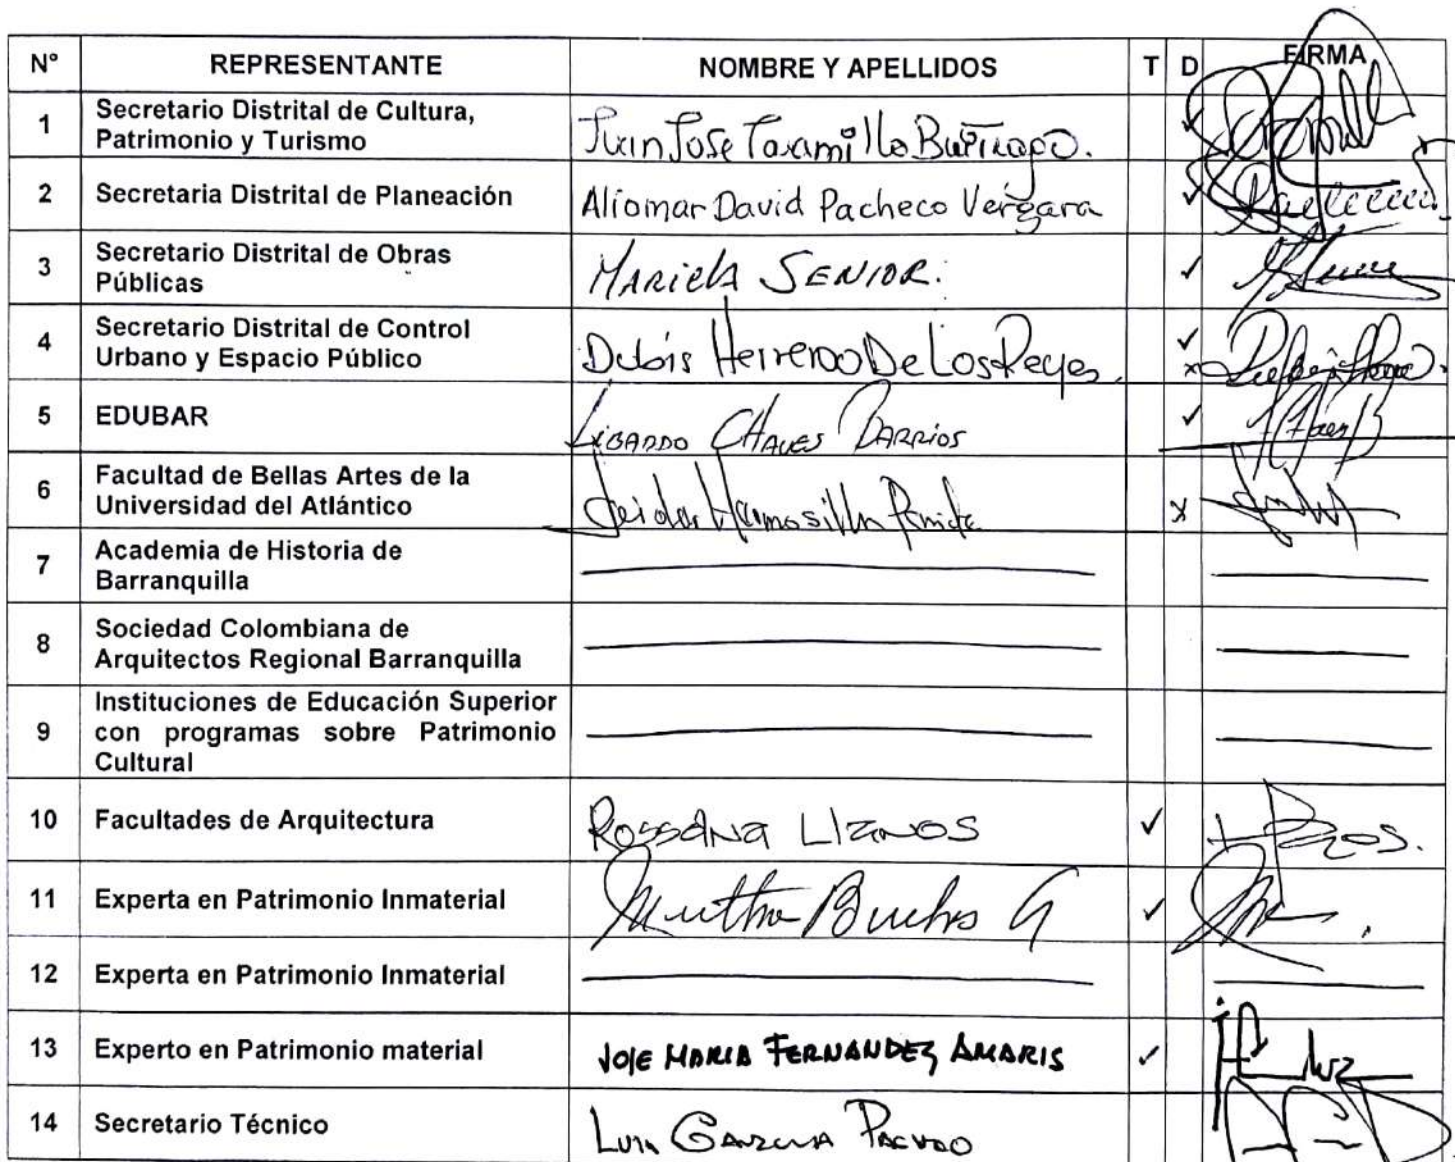 N° REPRESENTANTE NOMBRE Y APELLIDOS T D FIRMA
1 Secretario Distrital de Cultura, Patrimonio y Turismo Juan Jose Jaramillo Buitrago. ✓
2 Secretaria Distrital de Planeación Aliomar David Pacheco Vergara ✓
3 Secretario Distrital de Obras Públicas MARIELA SENIOR. ✓
4 Secretario Distrital de Control Urbano y Espacio Público Dubis Herrera De Los Reyes ✓ x
5 EDUBAR LIBARDO CHAVES BARRIOS ✓
6 Facultad de Bellas Artes de la Universidad del Atlántico x
7 Academia de Historia de Barranquilla
8 Sociedad Colombiana de Arquitectos Regional Barranquilla
9 Instituciones de Educación Superior con programas sobre Patrimonio Cultural
10 Facultades de Arquitectura ROSSANA LLANOS ✓
11 Experta en Patrimonio Inmaterial ✓
12 Experta en Patrimonio Inmaterial
13 Experto en Patrimonio material JOSE MARIA FERNANDEZ AMARIS ✓
14 Secretario Técnico LUIS